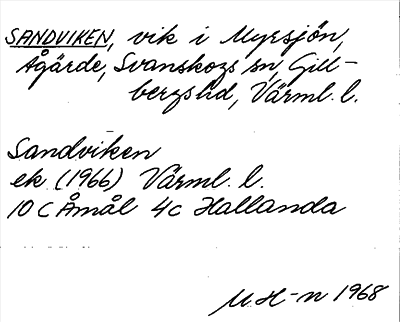 SANDVIKEN, vik i Myrsjön,
Ågärde, Svanskogs sn, Gill-
bergs hd, Värml. l.
Sandviken
ek (1966) Värml. l.
10 C Åmål 4c Hallanda
M H-n 1968